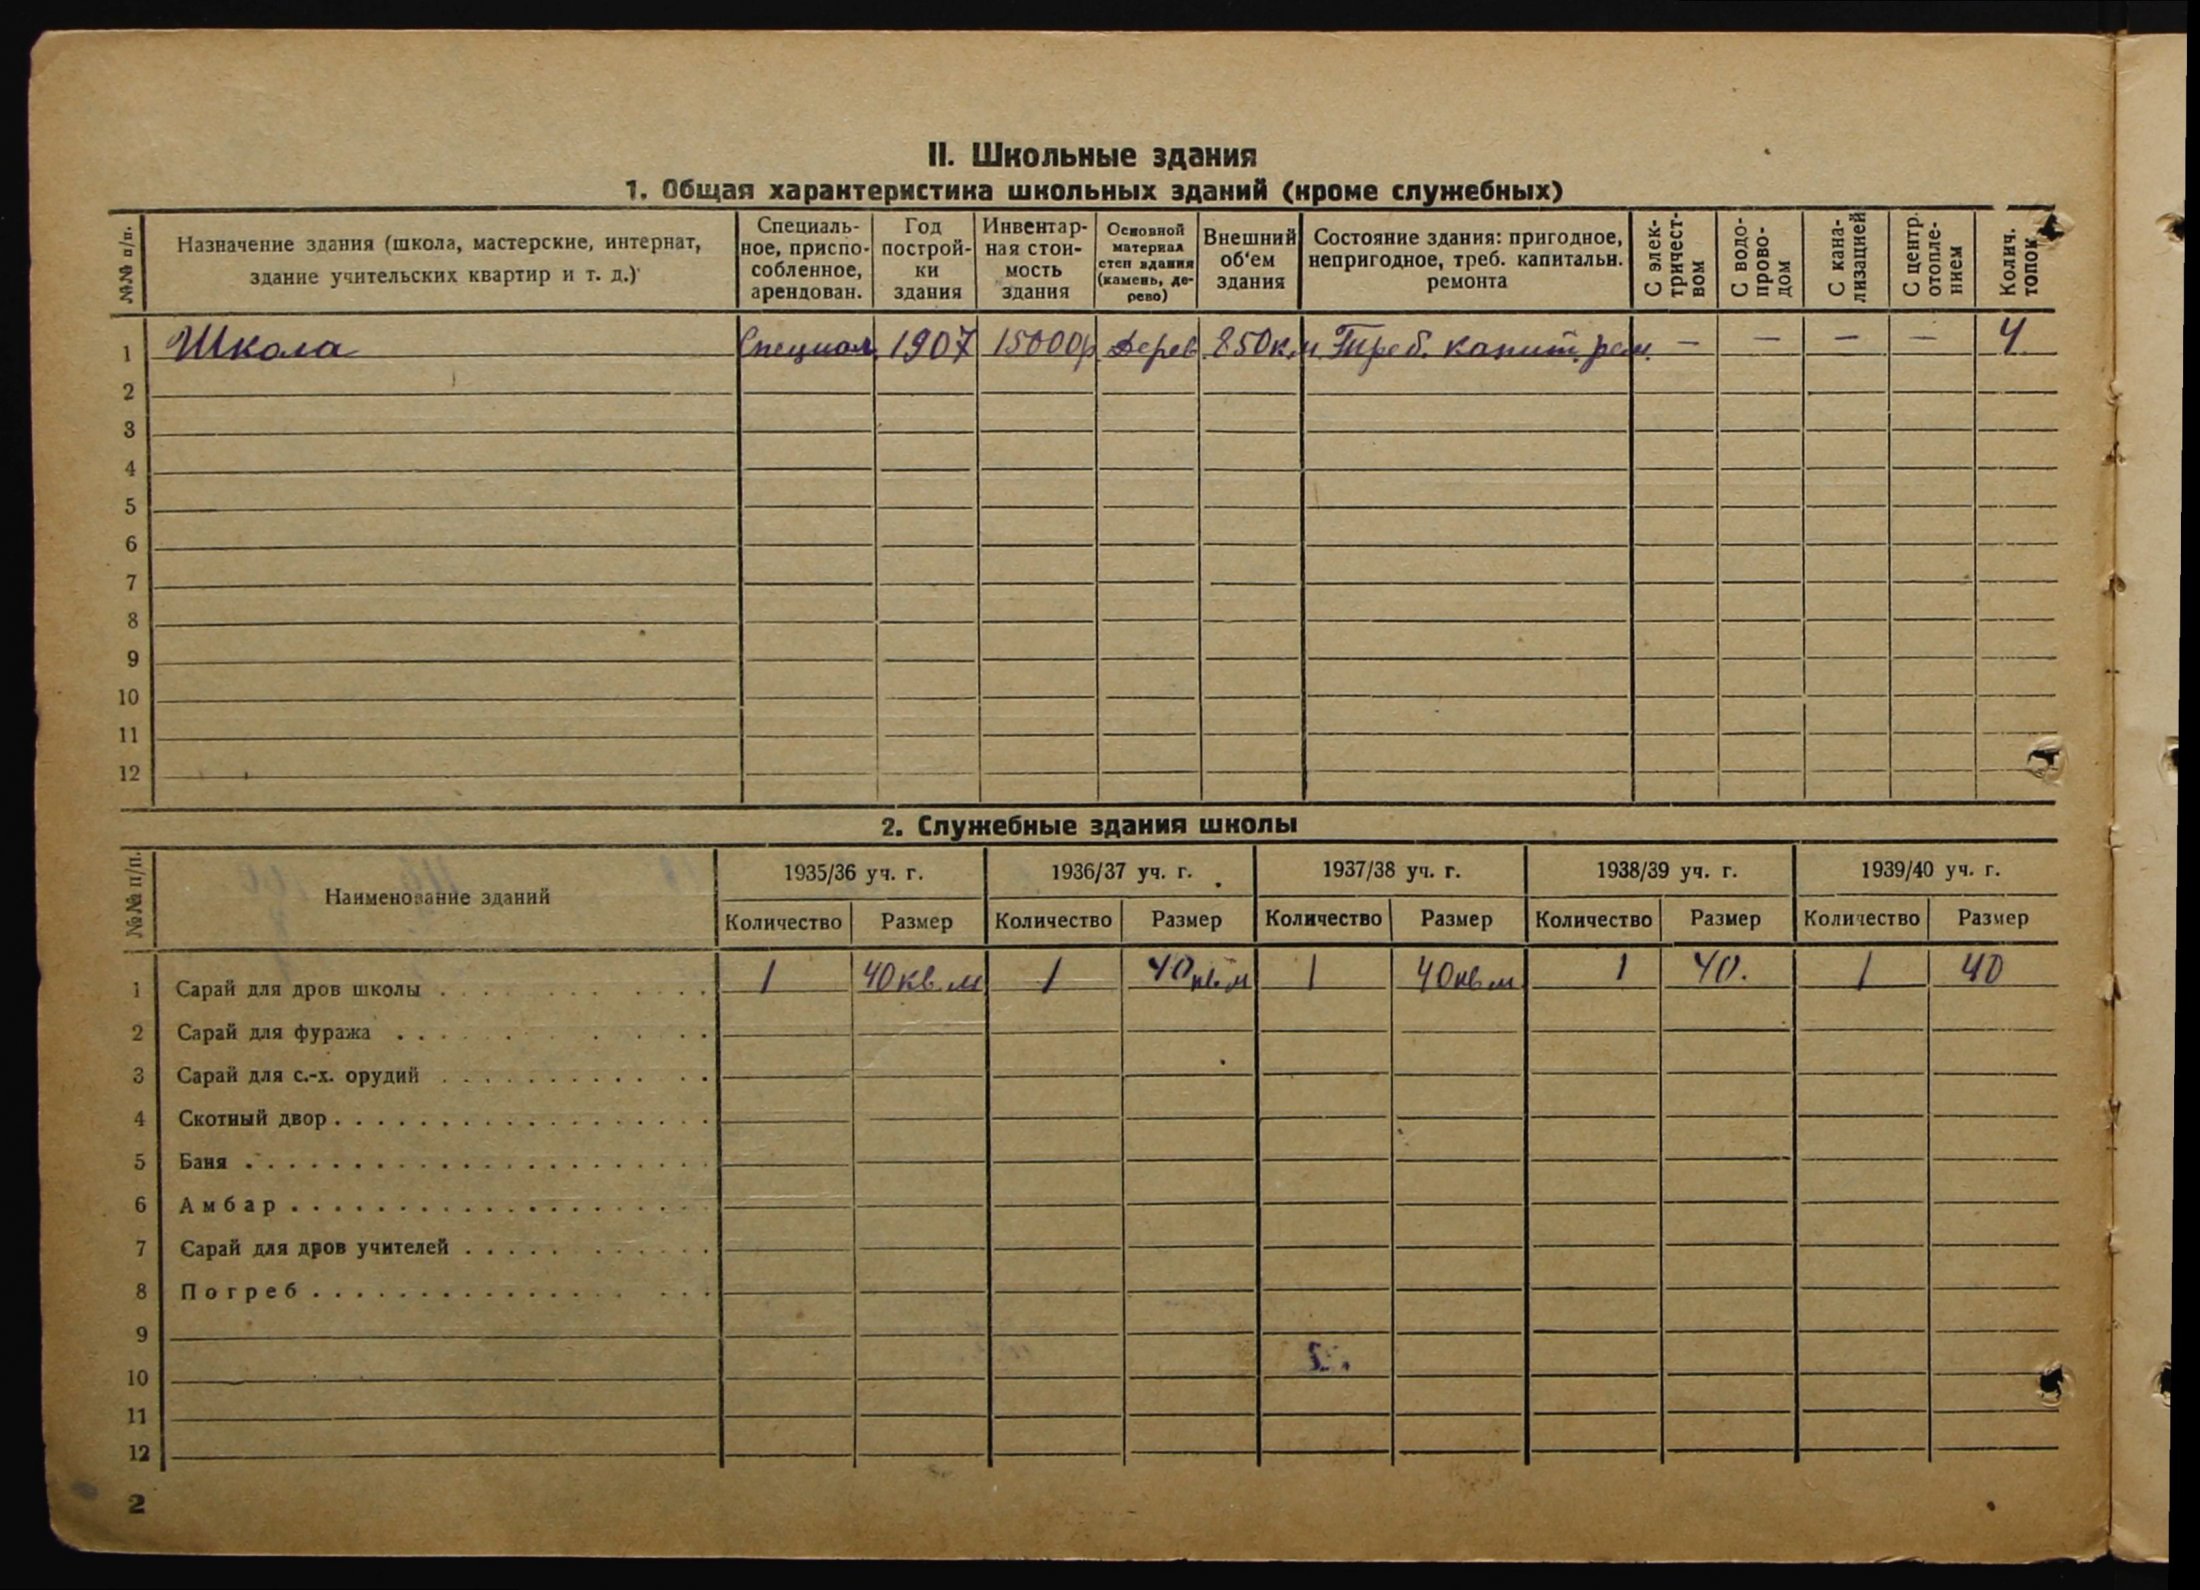 II. Школьные здания
1. Общая характеристика школьных зданий (кроме служебных)
№№ п/п.
Назначение здания (школа, мастерские, интернат,
здание учительских квартир и т. д.)
Специаль-
ное, приспо-
собленное,
арендован.
Год
построй-
ки
здания
Инвентар-
ная стои-
мость
здания
Основной
материал
стен здания
(камень, де-
рево)
Внешний
об'ем
здания
Состояние здания: пригодное,
непригодное, треб. капитальн.
ремонта
С элек-
тричест-
вом
С водо-
прово-
дом
С кана-
лизацией
С центр.
отопле-
нием
Колич.
топок
1 Школа Специал. 1907 15000р Дерев. 850к.м Треб. капит. рем. — — — — 4
2
3
4
5
6
7
8
9
10
11
12
2. Служебные здания школы
№№ п/п.
Наименование зданий
1935/36 уч. г. 1936/37 уч. г. 1937/38 уч. г. 1938/39 уч. г. 1939/40 уч. г.
Количество Размер Количество Размер Количество Размер Количество Размер Количество Размер
1 Сарай для дров школы 1 40кв.м 1 40кв.м 1 40кв.м 1 40. 1 40
2 Сарай для фуража
3 Сарай для с.-х. орудий
4 Скотный двор
5 Баня
6 Амбар
7 Сарай для дров учителей
8 Погреб
9
10
11
12
2